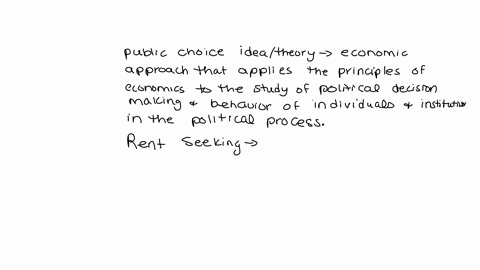 public choice idea/theory → economic
approach that applies the principles of
economics to the study of political decision
making & behavior of individuals & institution
in the political process.
Rent Seeking →